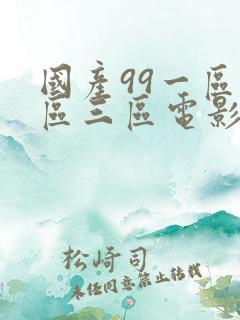 國產99一區
區三區電影
松崎司
未经同意禁止转载